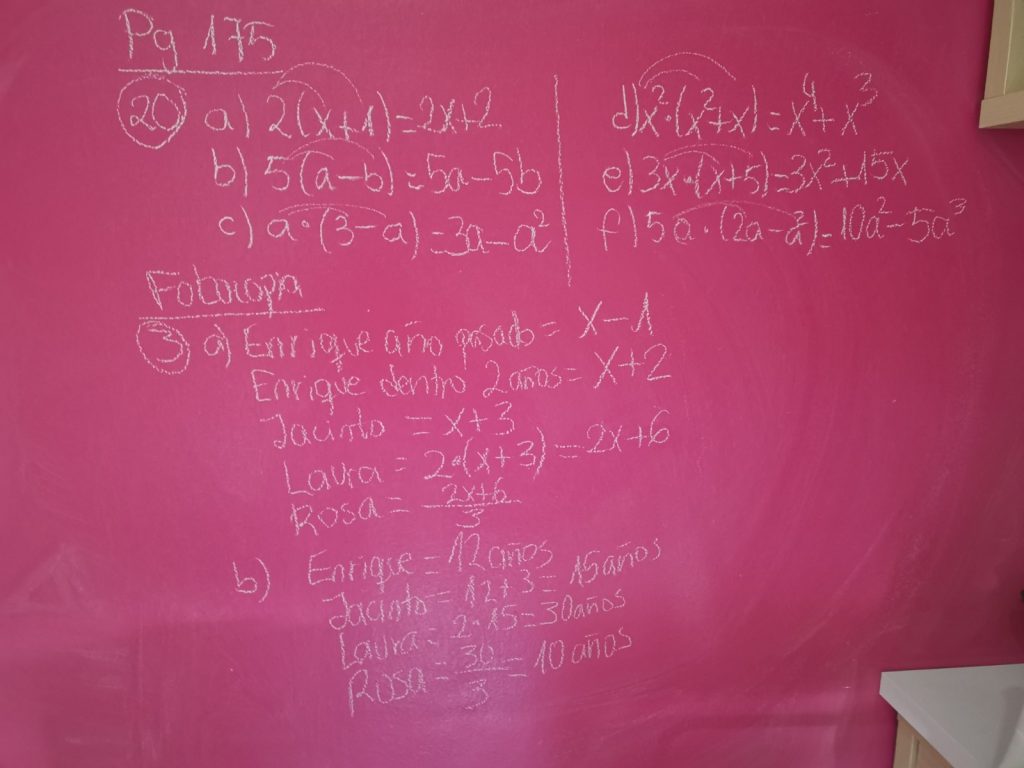 Pg 175
20 a) 2(x+1)=2x+2
b) 5(a-b)=5a-5b
c) a·(3-a)=3a-a²
d) x²·(x²+x)=x⁴+x³
e) 3x·(x+5)=3x²+15x
f) 5a·(2a-a²)=10a²-5a³
Fotocopia
3 a) Enrique año pasado = x-1
Enrique dentro 2 años = x+2
Jacinto = x+3
Laura = 2·(x+3) = 2x+6
Rosa = (2x+6)/3
b) Enrique = 12 años
Jacinto = 12+3 = 15 años
Laura = 2·15 = 30 años
Rosa = 30/3 = 10 años